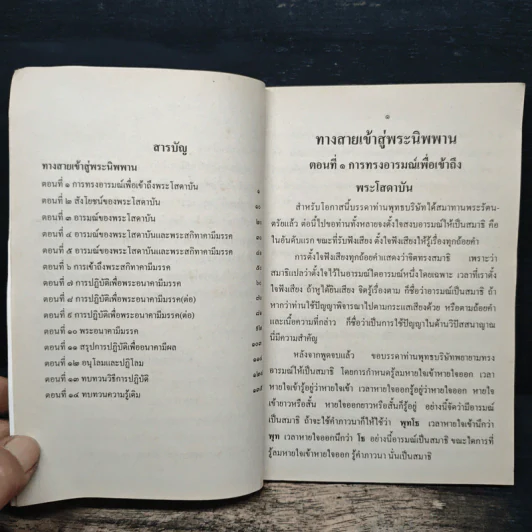 สารบัญ
ทางสายเข้าสู่พระนิพพาน
ตอนที่ ๑ การทรงอารมณ์เพื่อเข้าถึงพระโสดาบัน ๑
ตอนที่ ๒ สังโยชน์ของพระโสดาบัน
ตอนที่ ๓ อารมณ์ของพระโสดาบัน
ตอนที่ ๔ อารมณ์ของพระโสดาบันและพระสกิทาคามีมรรค
ตอนที่ ๕ อารมณ์ของพระโสดาบันและพระสกิทาคามีมรรค
ตอนที่ ๖ การเข้าถึงพระสกิทาคามีมรรค
ตอนที่ ๗ การปฏิบัติเพื่อพระอนาคามีมรรค
ตอนที่ ๘ การปฏิบัติเพื่อพระอนาคามีมรรค(ต่อ)
ตอนที่ ๙ การปฏิบัติเพื่อพระอนาคามีมรรค(ต่อ)
ตอนที่ ๑๐ พระอนาคามีมรรค
ตอนที่ ๑๑ สรุปการปฏิบัติเพื่ออนาคามีผล
ตอนที่ ๑๒ อนุโลมและปฏิโลม
ตอนที่ ๑๓ ทบทวนวิธีการปฏิบัติ
ตอนที่ ๑๔ ทบทวนความรู้เดิม
๑
ทางสายเข้าสู่พระนิพพาน
ตอนที่ ๑ การทรงอารมณ์เพื่อเข้าถึง
พระโสดาบัน
สำหรับโอกาสนี้บรรดาท่านพุทธบริษัทได้สมาทานพระรัตน-
ตรัยแล้ว ต่อนี้ไปขอท่านทั้งหลายจงตั้งใจสงบอารมณ์ให้เป็นสมาธิ คือ
ในอันดับแรก ขณะที่รับฟังเสียง ตั้งใจฟังเสียงให้รู้เรื่องทุกถ้อยคำ
การตั้งใจฟังเสียงทุกถ้อยคำแสดงว่าจิตทรงสมาธิ เพราะว่า
สมาธิแปลว่าตั้งใจไว้ในอารมณ์ใดอารมณ์หนึ่งโดยเฉพาะ เวลาที่เราตั้ง
ใจฟังเสียง ถ้าหูได้ยินเสียง จิตรู้เรื่องตาม ก็ชื่อว่าอารมณ์เป็นสมาธิ ถ้า
หากว่าท่านใช้ปัญญาพิจารณาไปตามกระแสเสียงด้วย หรือตามถ้อยคำ
และเนื้อความที่กล่าว ก็ชื่อว่าเป็นการใช้ปัญญาในด้านวิปัสสนาญาณ
นี่มีความสำคัญ
หลังจากพูดจบแล้ว ขอบรรดาท่านพุทธบริษัทพยายามทรง
อารมณ์ให้เป็นสมาธิ โดยการกำหนดรู้ลมหายใจเข้าหายใจออก เวลา
หายใจเข้ารู้อยู่ว่าหายใจเข้า เวลาหายใจออกรู้อยู่ว่าหายใจออก หายใจ
เข้ายาวหรือสั้น หายใจออกยาวหรือสั้นก็รู้อยู่ อย่างนี้จัดว่ามีอารมณ์
เป็นสมาธิ ถ้าจะใช้คำภาวนาก็ให้ใช้ว่า พุทโธ เวลาหายใจเข้านึกว่า
พุท เวลาหายใจออกนึกว่า โธ อย่างนี้อารมณ์เป็นสมาธิ ขณะใดการที่
รู้ลมหายใจเข้าหายใจออก รู้คำภาวนา นั่นเป็นสมาธิ